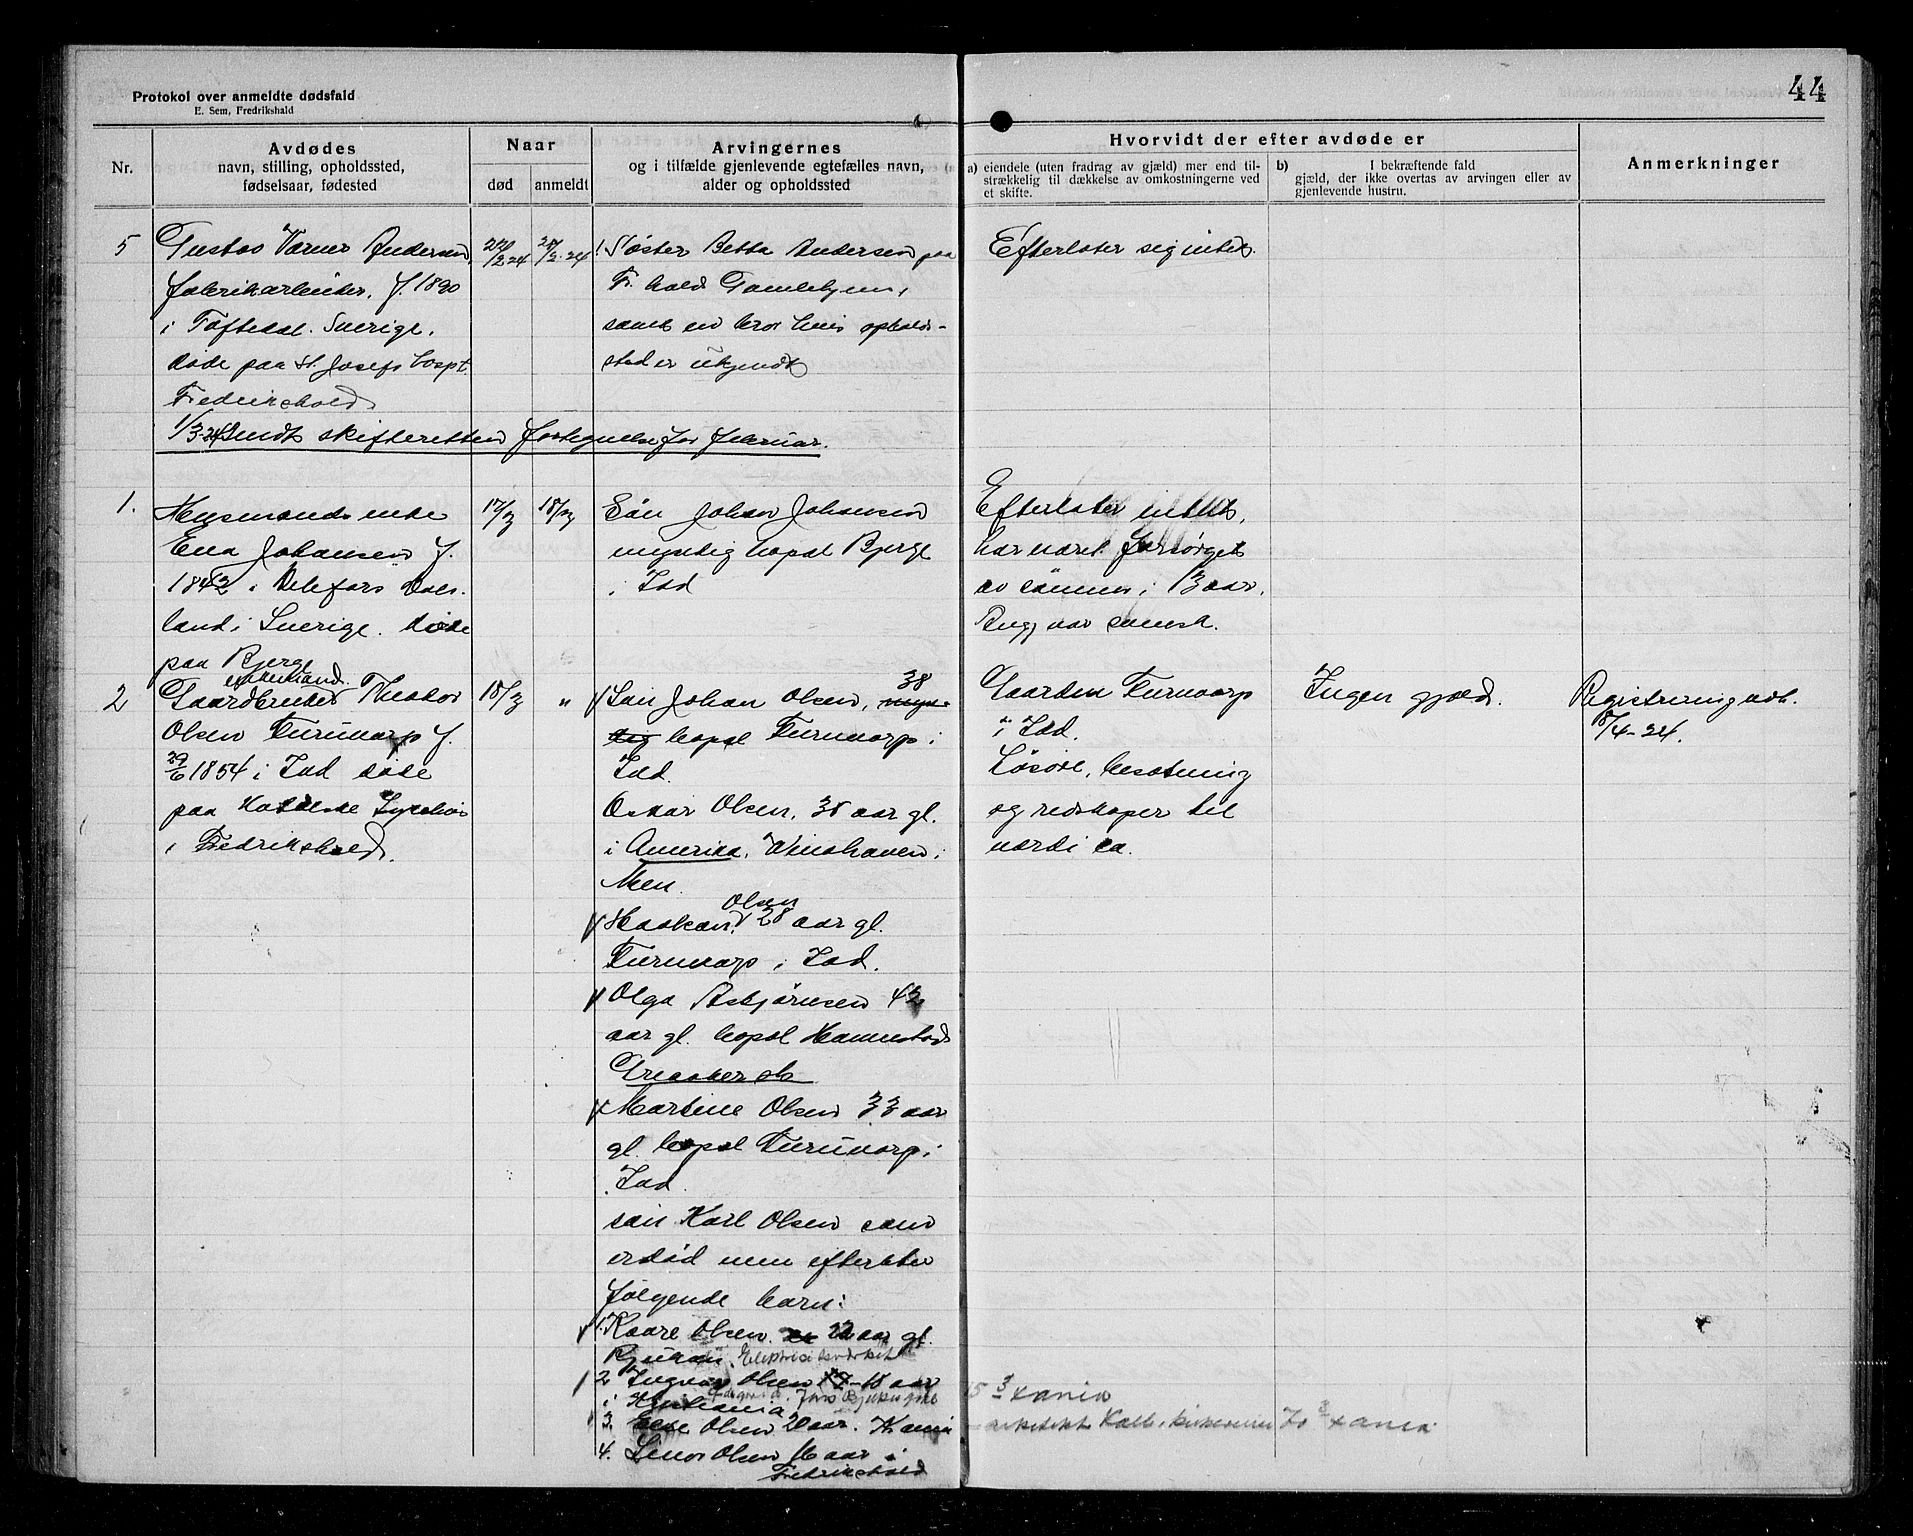 44
Protokol over anmeldte dødsfald
E. Sem, Fredrikshald
Nr.
Avdødes
navn, stilling, opholdssted,
fødselsaar, fødested
Naar
død
anmeldt
Arvingernes
og i tilfælde gjenlevende egtefælles navn,
alder og opholdssted
Hvorvidt der efter avdøde er
a) eiendele (uten fradrag av gjæld) mer end til-
strækkelig til dækkelse av omkostningerne ved
et skifte.
b) I bekræftende fald
gjæld, der ikke overtas av arvingen eller av
gjenlevende hustru.
Anmerkninger
5
Gustav Verner Andersen,
fabrikarbeider, f. 1890
i Töftedal. Sverige,
døde paa St. Josefs hospt.
Fredrikshald
Søster Betta Andersen paa
Fr.hald Gamlehjem,
samt en bror hvis opholds-
sted er ukjendt
Efterlater seg intet.
1/3-24 Sendt skifteretten fortegnelse for februar.
1.
Husmands enke
Ena Johansen f.
1842 i Dals-
land i Sverige. døde
paa Bjerge
17/3
18/3
Søn Johan Johansen
myndig bopæl Bjerge
i Idd
Efterlater intet,
har været forsørget
av sønnen i 13 aar.
var svensk.
2
enkemand.
Gaardbruker Theodor
Olsen Furuvarp f.
29/6 1854 i Idd døde
paa Katolske Sykehus
i Fredrikshald.
18/3
"
Søn Johan Olsen, 38
myn-
dig bopæl Furuvarp i
Idd.
Oskar Olsen, 35 aar gl.
i Amerika, Vinahaven i
Men.
Haakon Olsen 28 aar gl.
Furuvarp i Idd.
Olga Asbjørnsen 42
aar gl. bopæl Hannestad
Greaaker st.
Martine Olsen 33 aar
gl. bopæl Furuvarp i
Idd.
søn Karl Olsen som
er død men efterlater
følgende barn:
1. Kaare Olsen 22 aar gl.
Rjukan. Elektricitetsverket
2 Ingvar Olsen 18 aar
i Kristiania
3. Else Olsen 20 aar. Kania
4. Lenor Olsen 16 aar i
Fredrikshald
Gaarden Furuvarp
i Idd.
Løsøre, besætning
og redskaper til
værdi ca.
Ingen gjæld.
Registrering avh.
8/4-24.
15 3 xania
arkitekt Kall, 70 3 xania